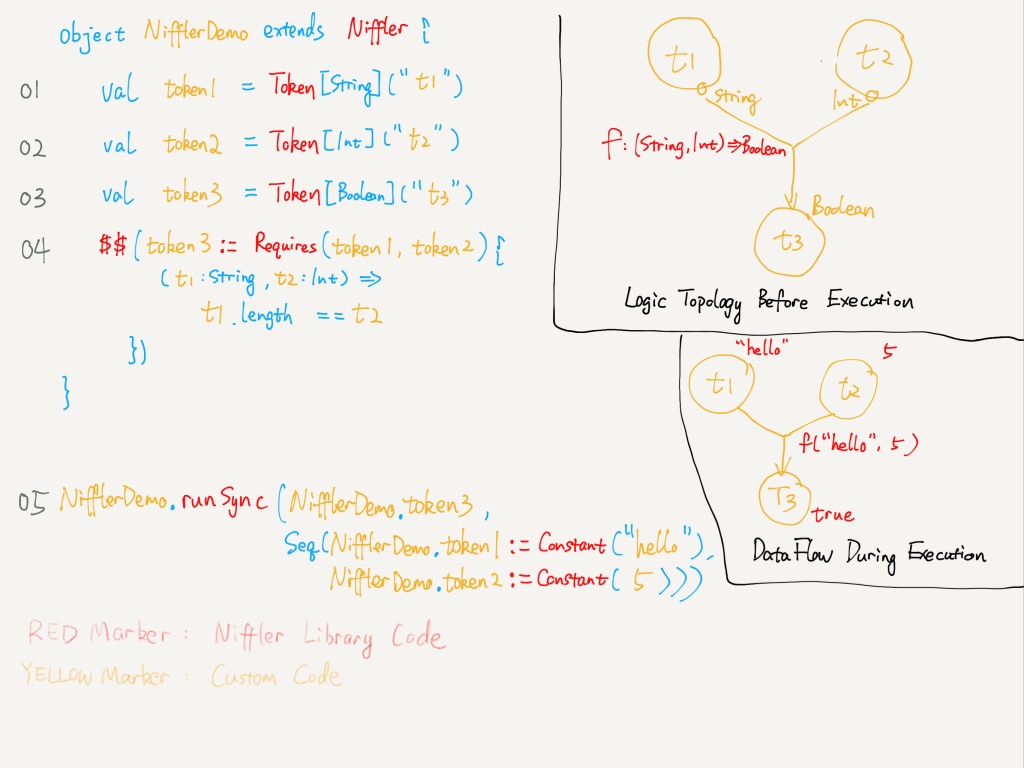 object NifflerDemo extends Niffler {
01 val token1 = Token[String]("t1")
02 val token2 = Token[Int]("t2")
03 val token3 = Token[Boolean]("t3")
04 $$(token3 := Requires(token1, token2) {
(t1:String, t2:Int) =>
t1.length == t2
})
}
05 NifflerDemo.runSync(NifflerDemo.token3,
Seq(NifflerDemo.token1 := Constant("hello"),
NifflerDemo.token2 := Constant(5)))
RED Marker: Niffler Library Code
YELLOW Marker: Custom Code
t1
t2
String
Int
f:(String,Int)=>Boolean
Boolean
t3
Logic Topology Before Execution
"hello"
5
t1
t2
f("hello", 5)
T3
true
DataFlow During Execution